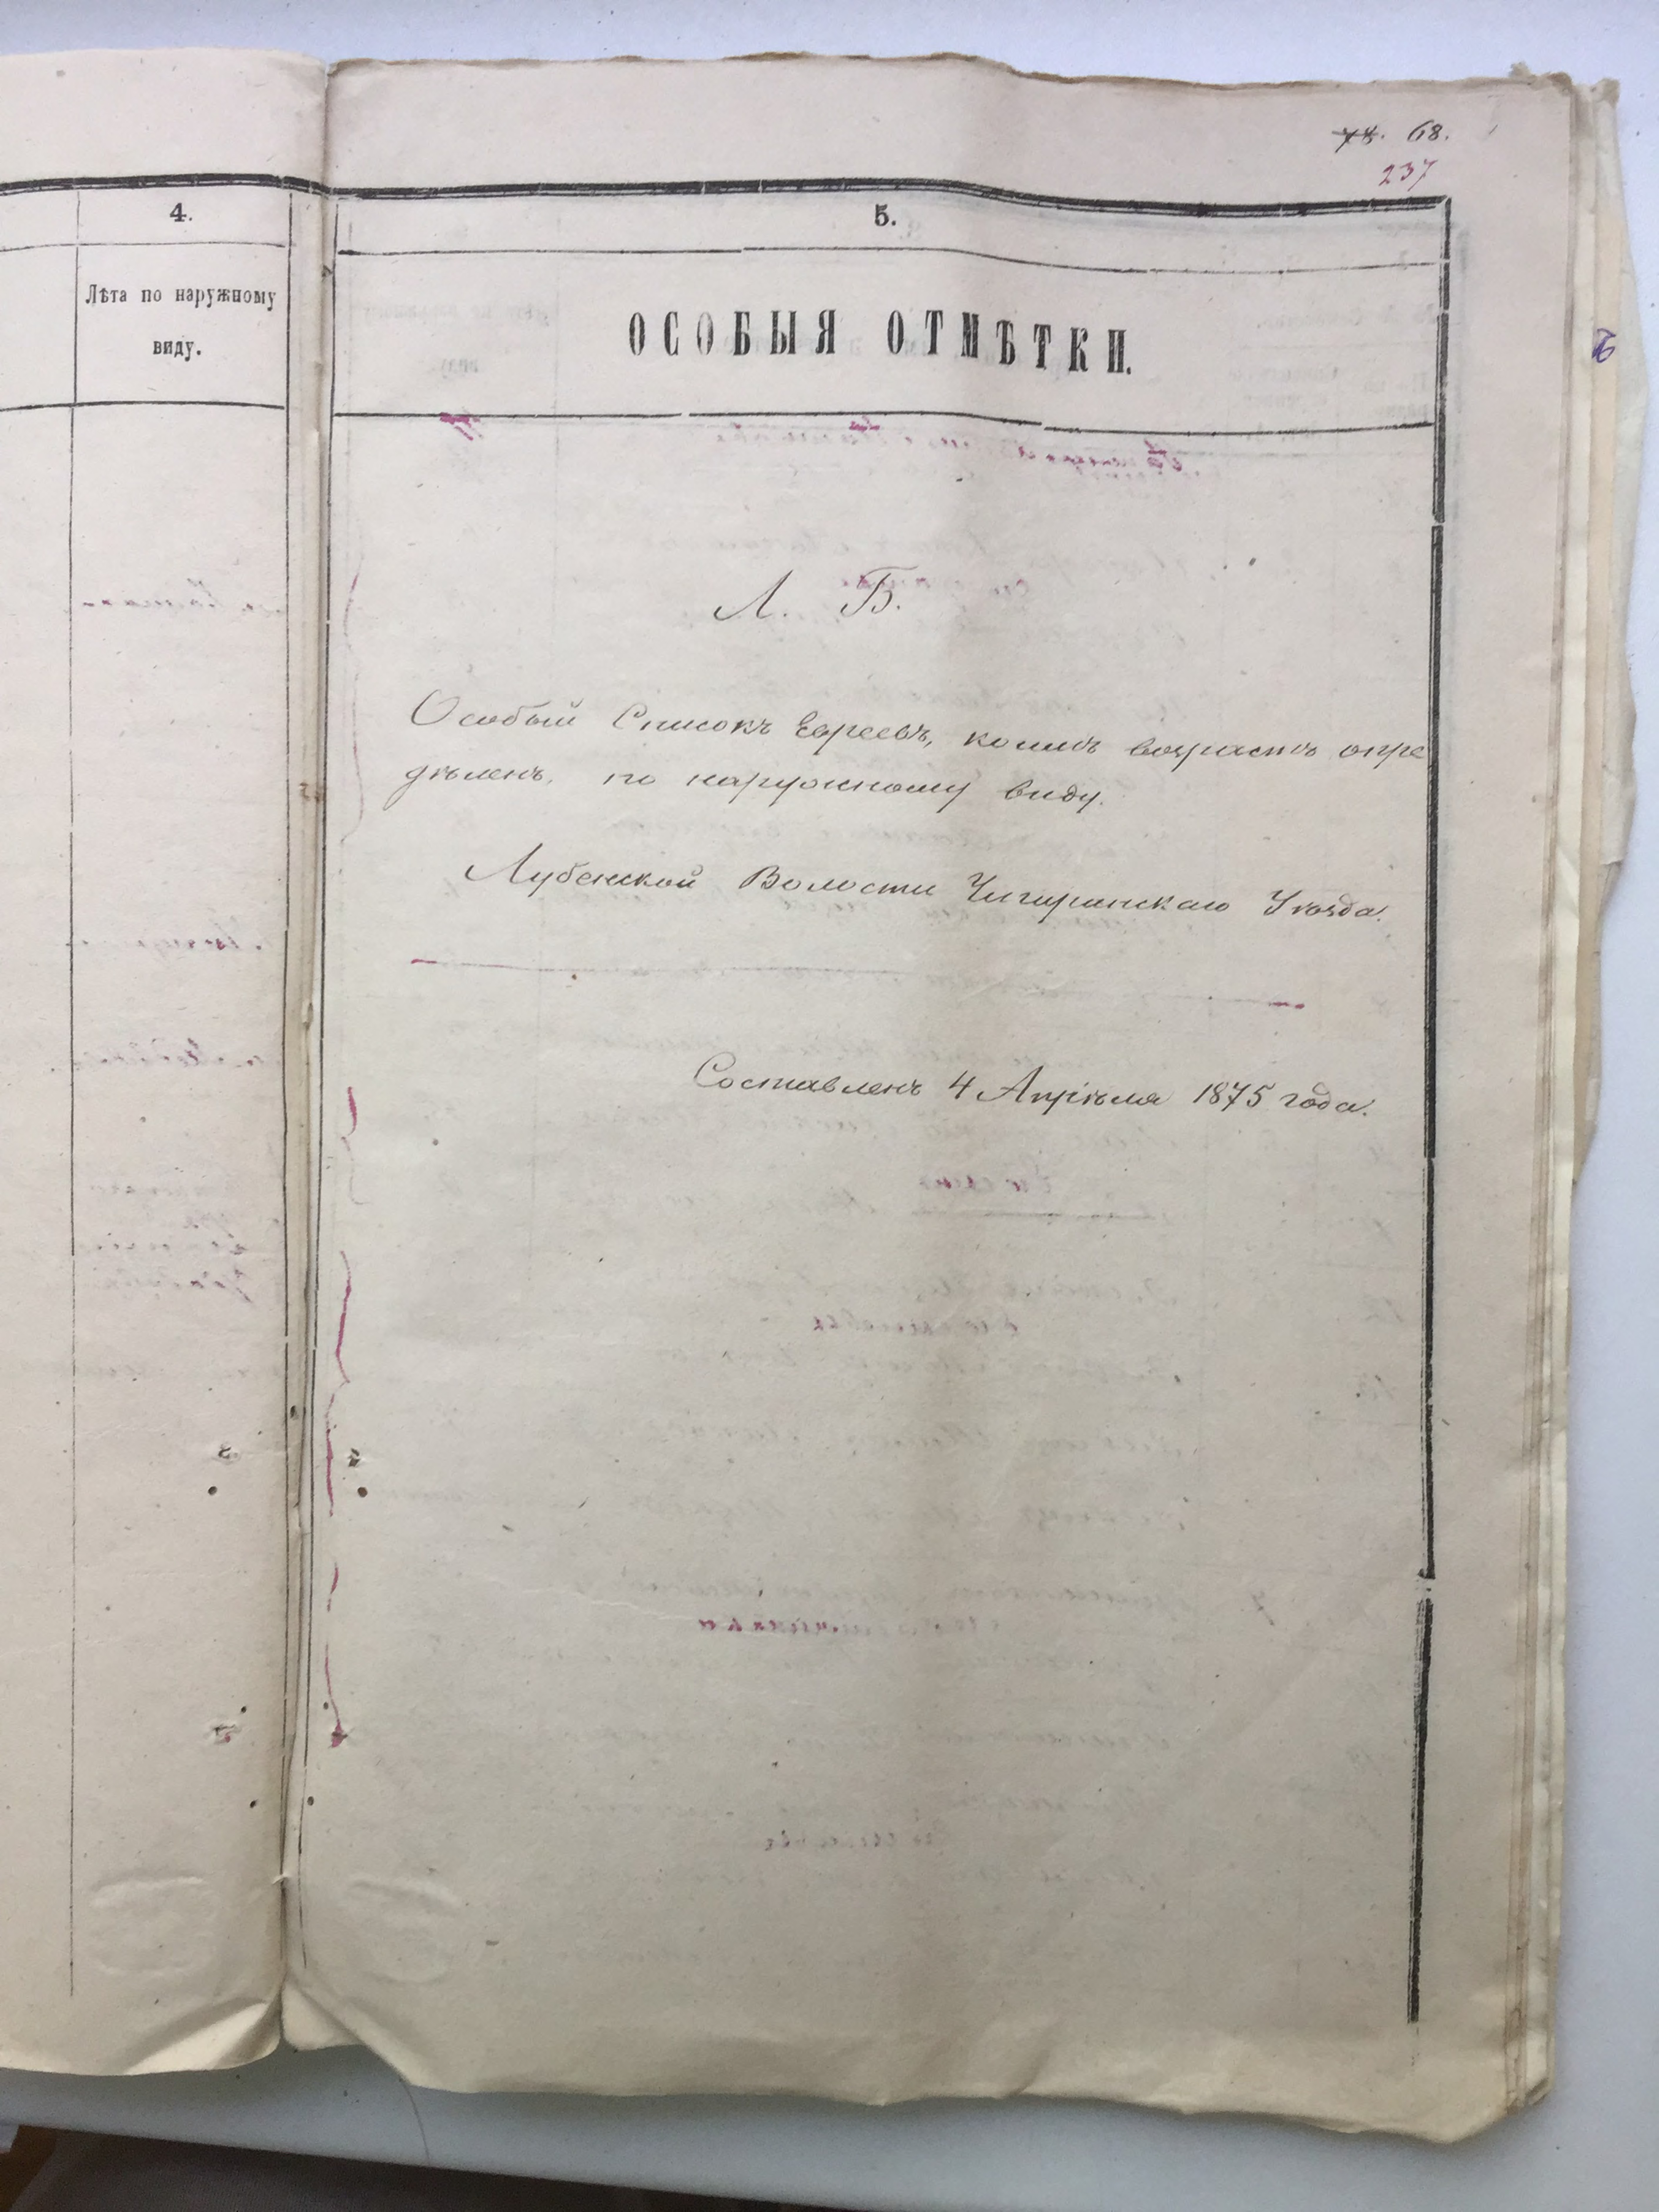 78. 68.
237
4.
Лѣта по наружному
виду.
5.
ОСОБЫЯ ОТМѢТКИ.
Л. Б.
Особый Списокъ Евреевъ, коимъ возрастъ опре
дѣленъ, по наружному виду.
Лубенской Волости Чигиринскаго Уѣзда.
Составленъ 4 Апрѣля 1875 года.